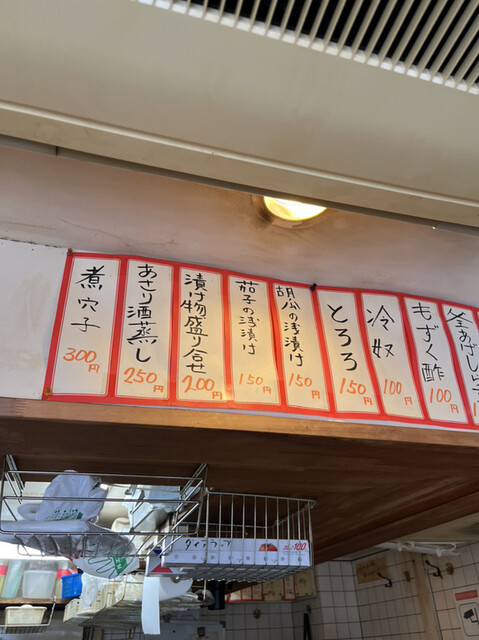 煮穴子
300円
あさり酒蒸し
250円
漬け物盛り合せ
200円
茄子の浅漬け
150円
胡瓜の浅漬け
150円
とろろ
150円
冷奴
100円
もずく酢
100円
釜あげしらす